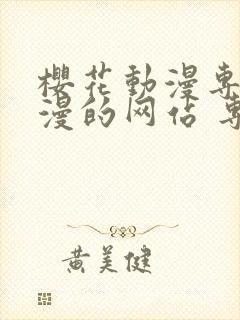 櫻花動漫專
漫的网站 專
黄美健